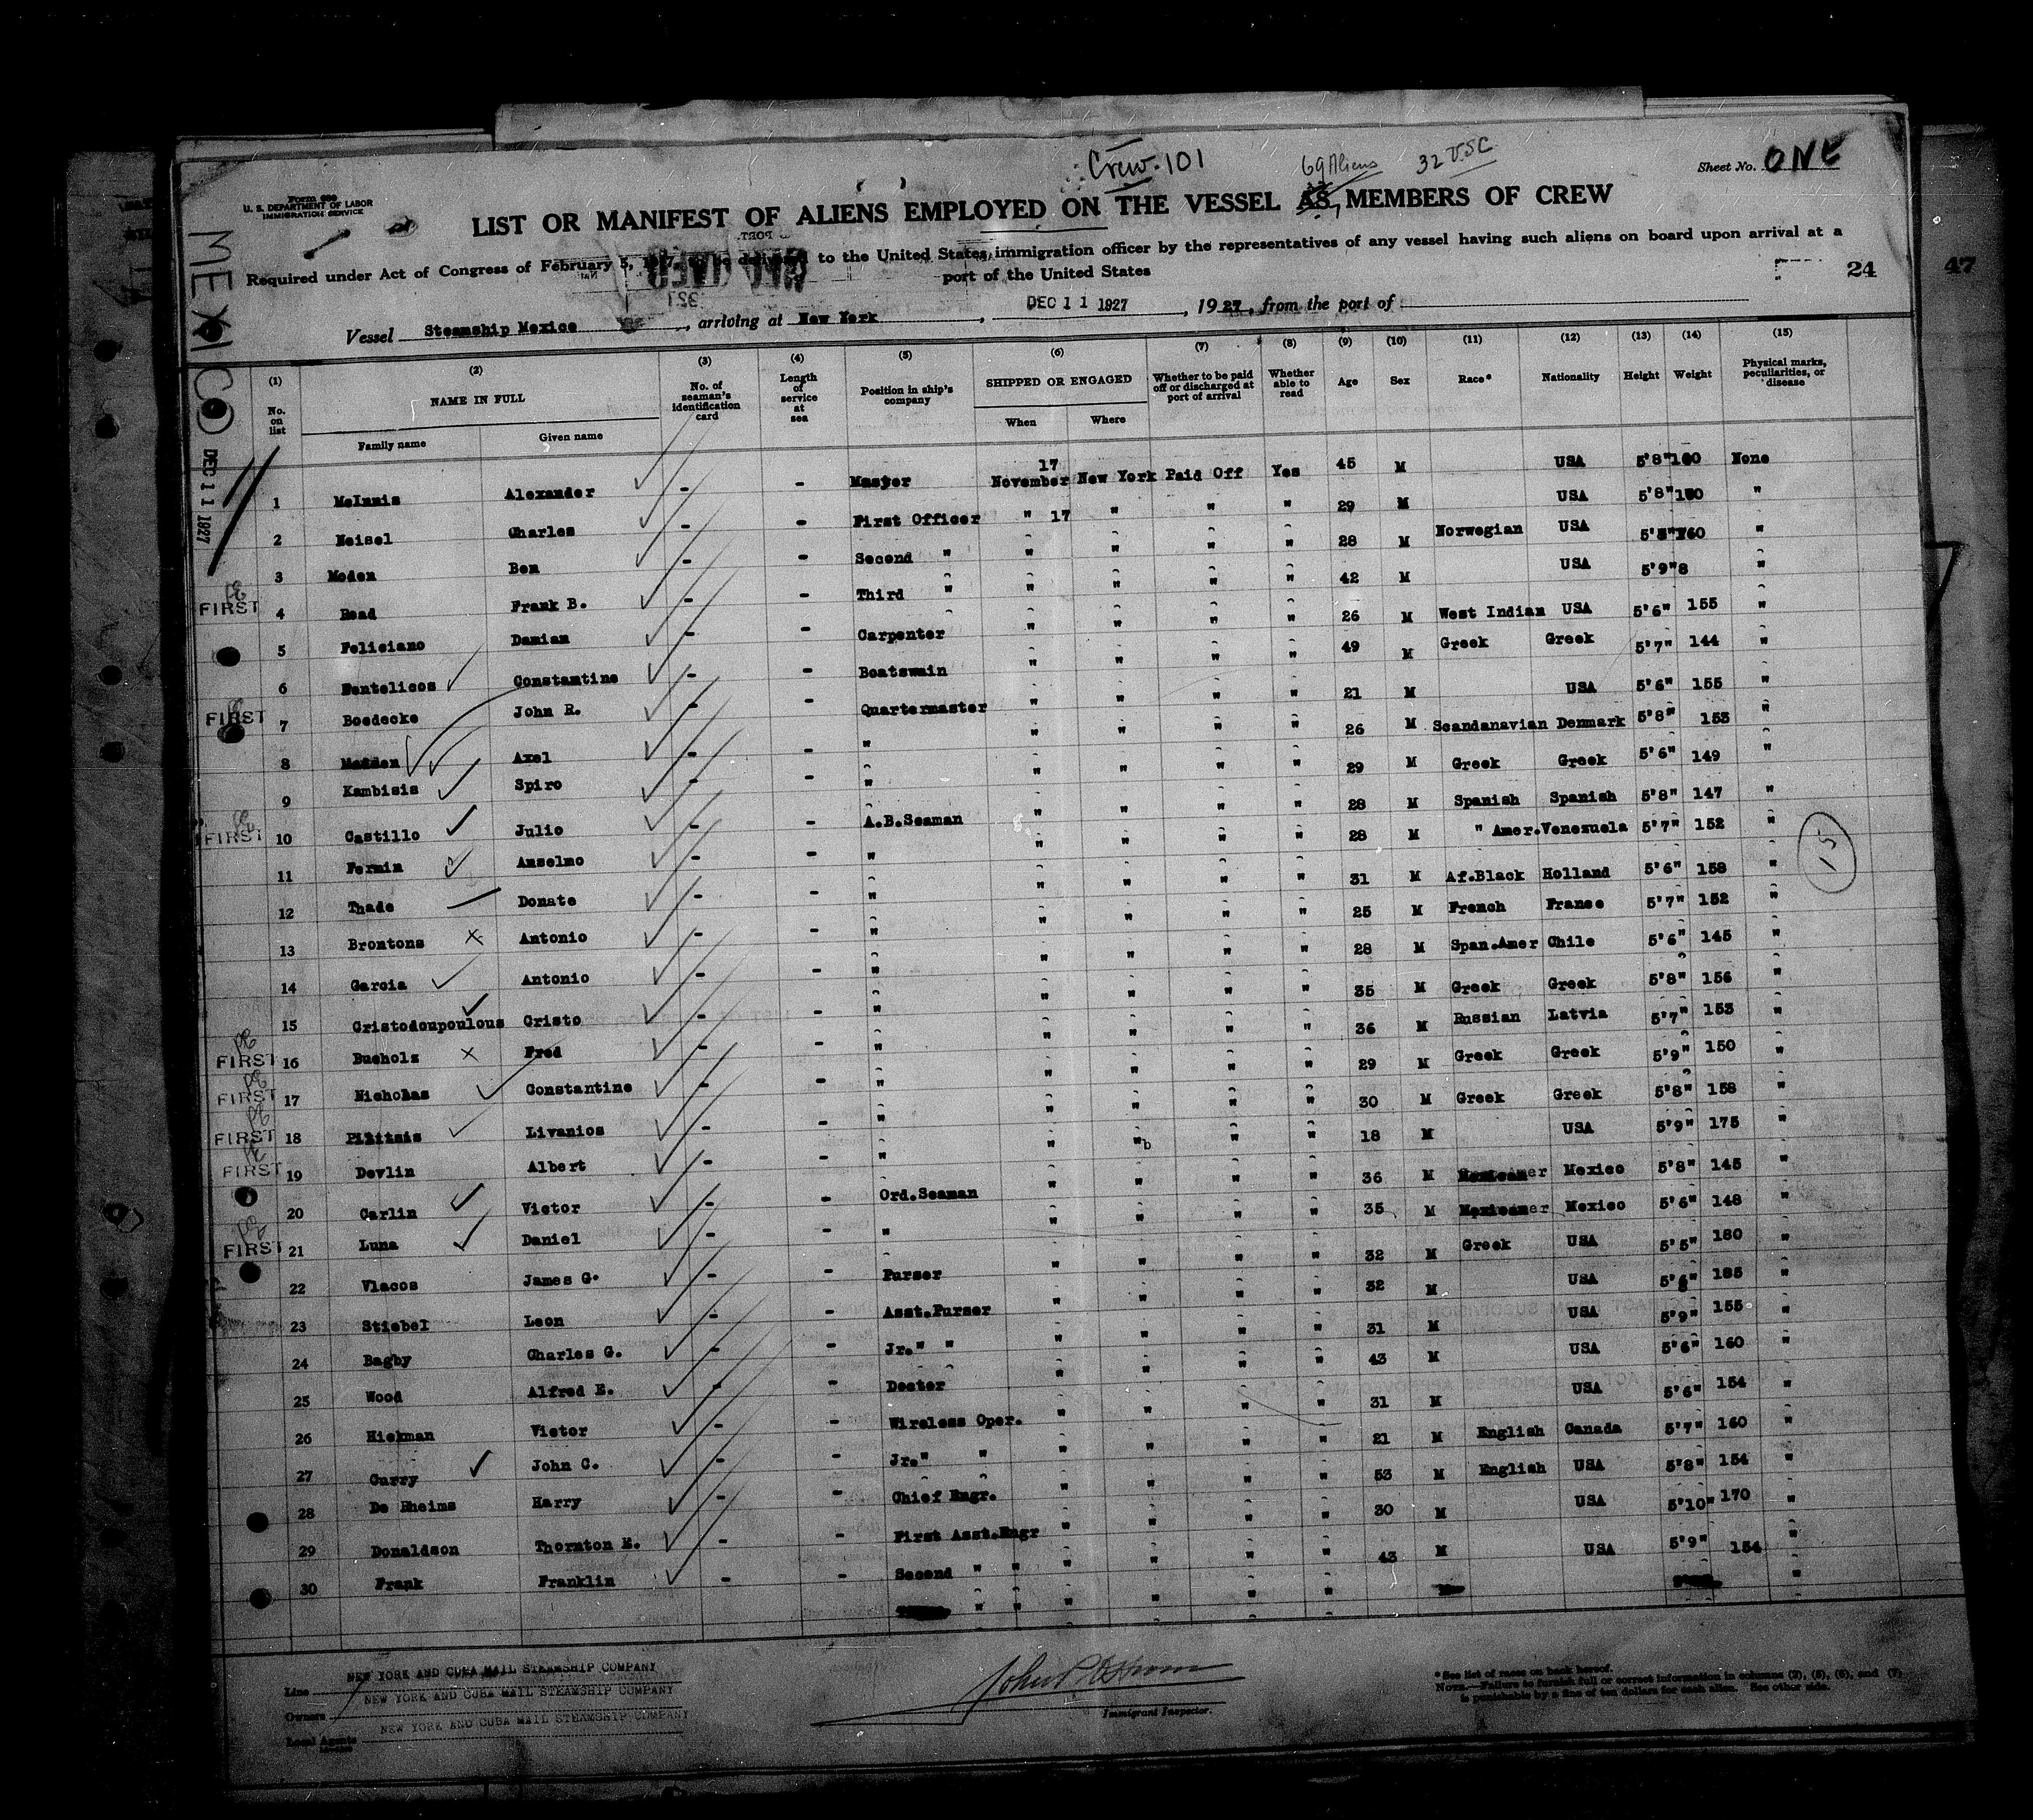 Crew. 101 69 Aliens 32 USC
Sheet No. ONE
U. S. DEPARTMENT OF LABOR
IMMIGRATION SERVICE
LIST OR MANIFEST OF ALIENS EMPLOYED ON THE VESSEL AS MEMBERS OF CREW
Required under Act of Congress of February 5, to be delivered to the United States immigration officer by the representatives of any vessel having such aliens on board upon arrival at a
port of the United States
24
47
MEXICO
DEC 11 1927
Vessel Steamship Mexico, arriving at New York, DEC 11 1927, 1927, from the port of
(1) (2) (3) (4) (5) (6) (7) (8) (9) (10) (11) (12) (13) (14) (15)
No. on list NAME IN FULL No. of seaman's identification card Length of service at sea Position in ship's company SHIPPED OR ENGAGED Whether to be paid off or discharged at port of arrival Whether able to read Age Sex Race* Nationality Height Weight Physical marks, peculiarities, or disease
Family name Given name When Where
1 McInnis Alexander - - Master November 17 New York Paid Off Yes 45 M USA 5'8" None
2 Neisel Charles - - First Officer " 17 " " " 29 M USA 5'8" "
3 Moden Ben - - Second " " " " " 28 M Norwegian USA 160 "
FIRST 4 Read Frank B. - - Third " " " " " 42 M USA 5'9" "
5 Feliciano Damian - - Carpenter " " " " 26 M West Indian USA 5'6" 155 "
6 Constantine - - Boatswain " " " " 49 M Greek Greek 5'7" 144 "
FIRST 7 Boedecke John R. - - Quartermaster " " " " 21 M USA 5'6" 155 "
8 Madden Axel - - " " " " " 26 M Scandanavian Denmark 5'8" 153 "
9 Kambisis Spiro - - " " " " " 29 M Greek Greek 5'6" 149 "
FIRST 10 Castillo Julio - - A.B.Seaman " " " " 28 M Spanish Spanish 5'8" 147 "
11 Fermin Anselmo - - " " " " " 28 M " Amer. Venezuela 5'7" 152 "
15
12 Thade Donate - - " " " " " 31 M Af.Black Holland 5'6" 158 "
13 Brontons Antonio - - " " " " " 25 M French France 5'7" 152 "
14 Garcia Antonio - - " " " " " 28 M Span.Amer Chile 5'6" 145 "
15 Cristodoupoulous Cristo - - " " " " " 35 M Greek Greek 5'8" 156 "
FIRST 16 Bucholz Fred - - " " " " " 36 M Russian Latvia 5'7" 153 "
FIRST 17 Nicholas Constantine - - " " " " " 29 M Greek Greek 5'9" 150 "
FIRST 18 Livanios - - " " " " " 30 M Greek Greek 5'8" 158 "
FIRST 19 Devlin Albert - - " " " " " 18 M USA 5'9" 175 "
20 Carlin Victor - - Ord.Seaman " " " " 36 M Mexico 5'8" 145 "
FIRST 21 Luna Daniel - - " " " " " 35 M Mexico 5'6" 148 "
22 Vlacos James G. - - Purser " " " " 32 M Greek USA 5'5" 180 "
23 Stiebel Leon - - Asst.Purser " " " " 32 M USA 5'6" 185 "
24 Bagby Charles G. - - Jr." " " " " " 31 M USA 5'9" 155 "
25 Wood Alfred E. - - Doctor " " " " 43 M USA 5'6" 160 "
26 Hickman Victor - - Wireless Oper. " " " " 31 M USA 5'6" 154 "
27 Curry John C. - - Jr." " " " " " 21 M English Canada 5'7" 160 "
28 De Rheims Harry - - Chief Engr. " " " " 53 M English USA 5'8" 154 "
29 Donaldson Thornton E. - - First Asst.Engr " " " " 30 M USA 5'10" 170 "
30 Frank Franklin - - Second " " " " " " 43 M USA 5'9" 154 "
Line NEW YORK AND CUBA MAIL STEAMSHIP COMPANY
Owners NEW YORK AND CUBA MAIL STEAMSHIP COMPANY
Local Agents NEW YORK AND CUBA MAIL STEAMSHIP COMPANY
Immigrant Inspector.
* See list of races on back hereof.
NOTE.—Failure to furnish full or correct information in columns (2), (5), (6), and (7)
is punishable by a fine of ten dollars for each alien. See other side.